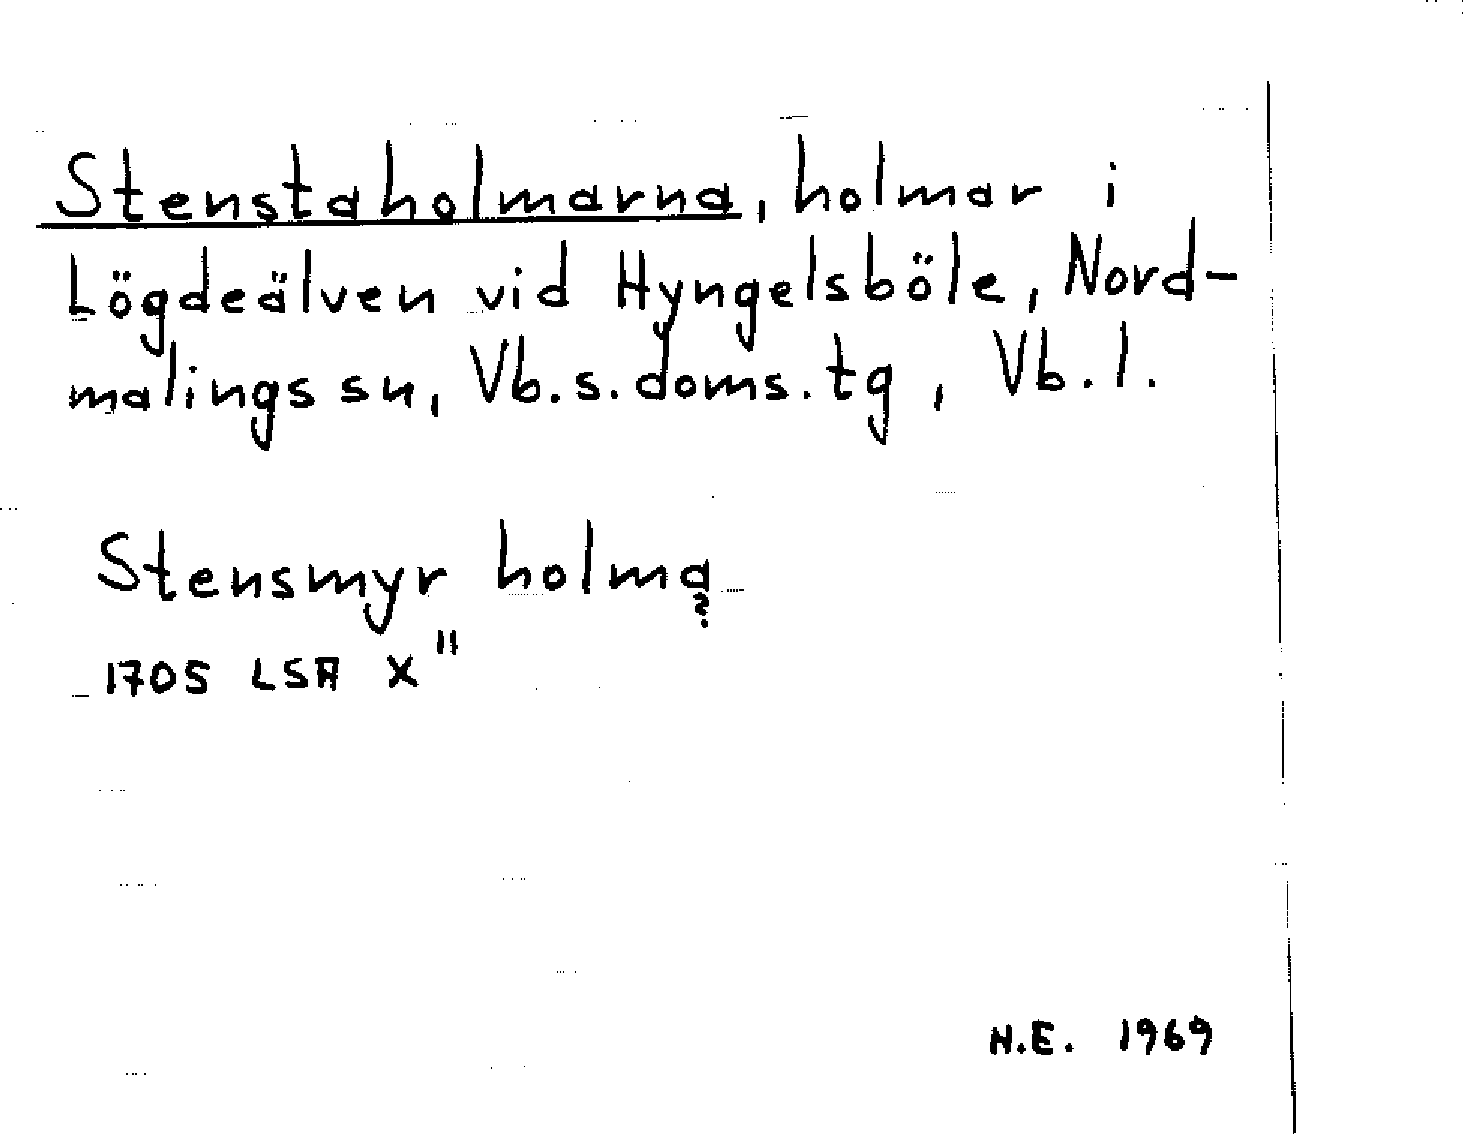 Stenstaholmarna, holmar i
Lögdeälven vid Hyngelsböle, Nord-
malings sn, Vb.s.doms.tg, Vb.l.
Stensmyr holma
?
1705 LSA X"
N.E. 1969